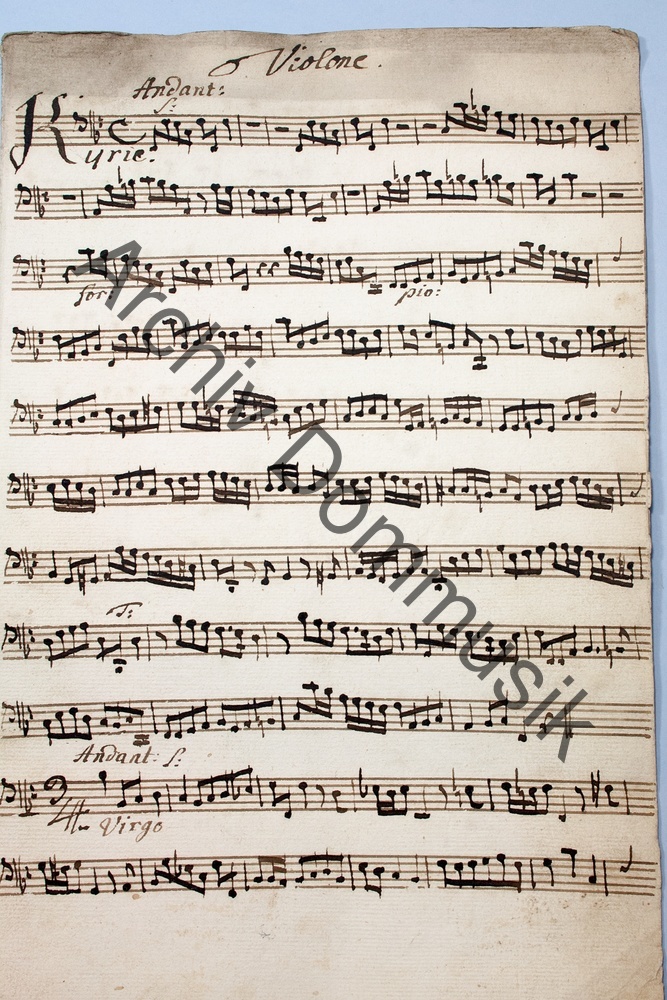 Violone.
Andant:
S:
Kyrie.
for:
pio:
T:
Andant: S:
Virgo
Archiv Dommusik